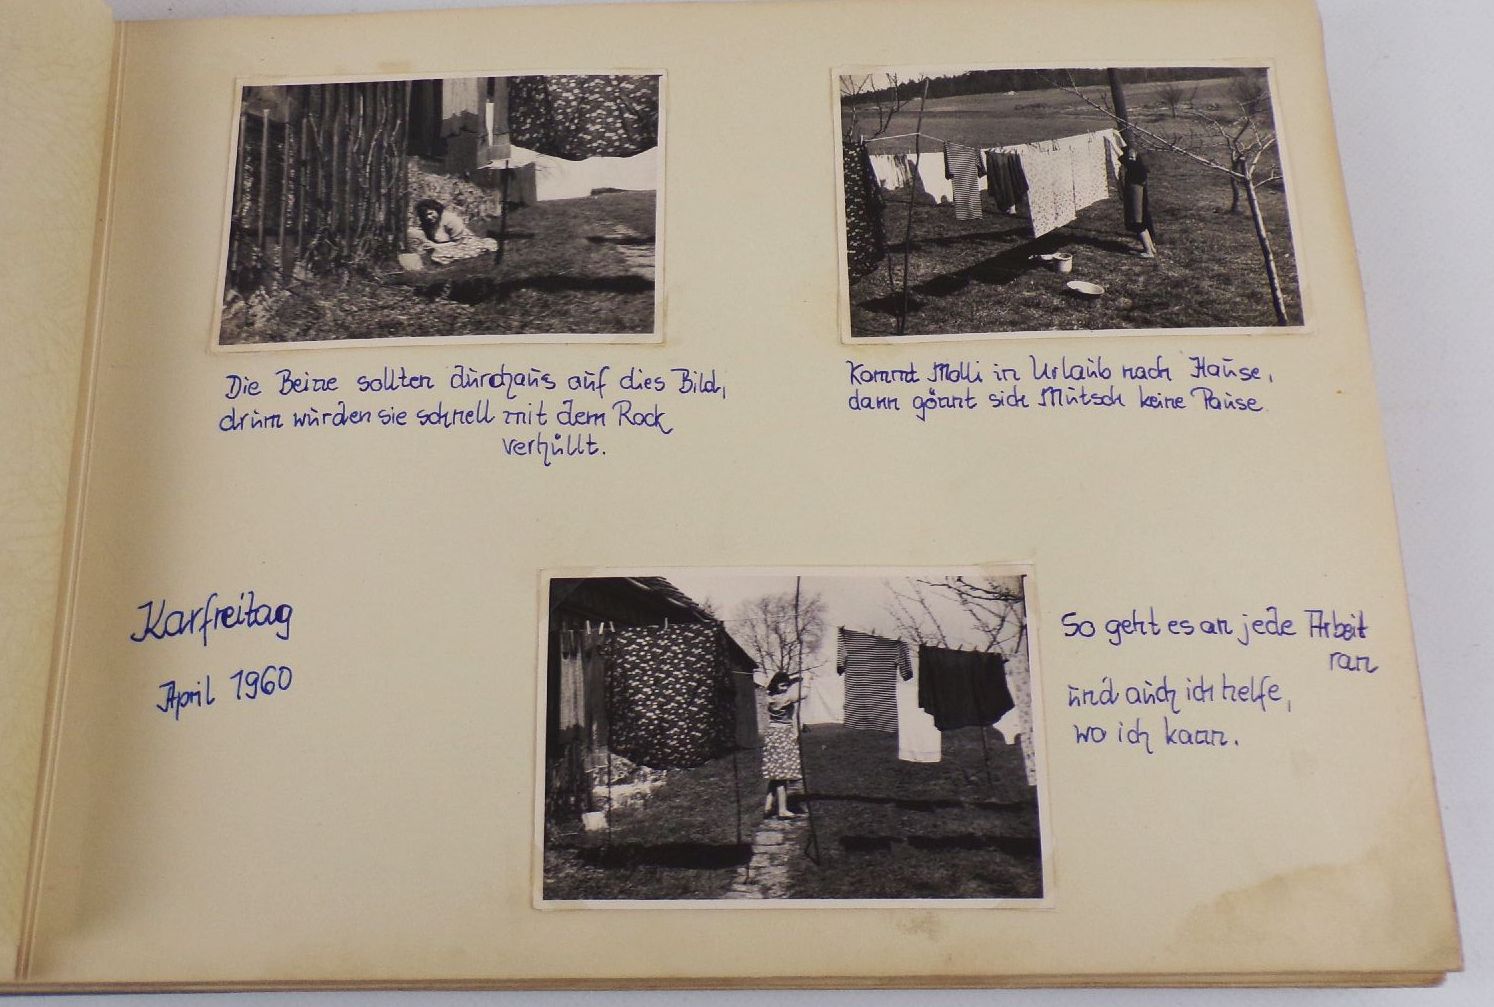 Die Beine sollten durchaus auf dies Bild,
drum wurden sie schnell mit dem Rock
verhüllt.
Kommt Molli in Urlaub nach Hause,
dann gönnt sich Mutsch keine Pause.
Karfreitag
April 1960
So geht es an jede Arbeit
ran
und auch ich helfe,
wo ich kann.